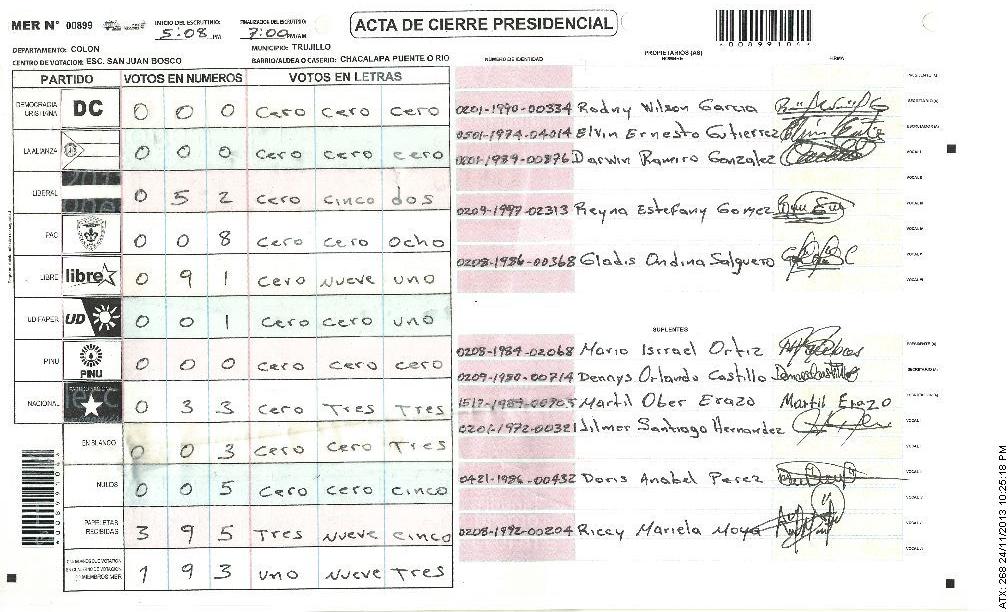 MER N° 00899
INICIO DEL ESCRUTINIO: 5:08 PM
FINALIZACION DEL ESCRUTINIO: 7:00 PM/AM
ACTA DE CIERRE PRESIDENCIAL
DEPARTAMENTO: COLON
MUNICIPIO: TRUJILLO
CENTRO DE VOTACION: ESC. SAN JUAN BOSCO
BARRIO/ALDEA O CASERIO: CHACALAPA PUENTE O RIO
PARTIDO VOTOS EN NUMEROS VOTOS EN LETRAS
DEMOCRACIA CRISTIANA DC 0 0 0 Cero Cero Cero
LA ALIANZA 0 0 0 Cero Cero Cero
LIBERAL 0 5 2 Cero Cinco dos
PAC 0 0 8 Cero Cero Ocho
LIBRE libre 0 9 1 Cero Nueve uno
UD FAPER UD 0 0 1 Cero Cero uno
PINU PINU 0 0 0 Cero Cero Cero
NACIONAL 0 3 3 Cero Tres Tres
EN BLANCO 0 0 3 Cero Cero Tres
NULOS 0 0 5 Cero Cero Cinco
PAPELETAS RECIBIDAS 3 9 5 Tres Nueve Cinco
MIEMBROS MER 1 9 3 uno Nueve Tres
NUMERO DE IDENTIDAD PROPIETARIOS (AS) NOMBRE FIRMA
0201-1990-00334 Rodny Wilson Garcia
0501-1974-04014 Elvin Ernesto Gutierrez
-1989-00876 Darwin Ramiro Gonzalez
0209-1997-02313 Reyna Estefany Gomez
0208-1986-00368 Gladis Ondina Salguero
SUPLENTES
0208-1984-02068 Mario Isrrael Ortiz
0209-1980-00714 Dennys Orlando Castillo
Martil Ober Erazo Martil Erazo
0201-1972-00321 Wilmer Santiago Hernandez
0421-1986-00432 Doris Anabel Perez
0208-1992-00204 Riccy Mariela Moya
ATX: 268 24/11/2013 10:25:18 PM